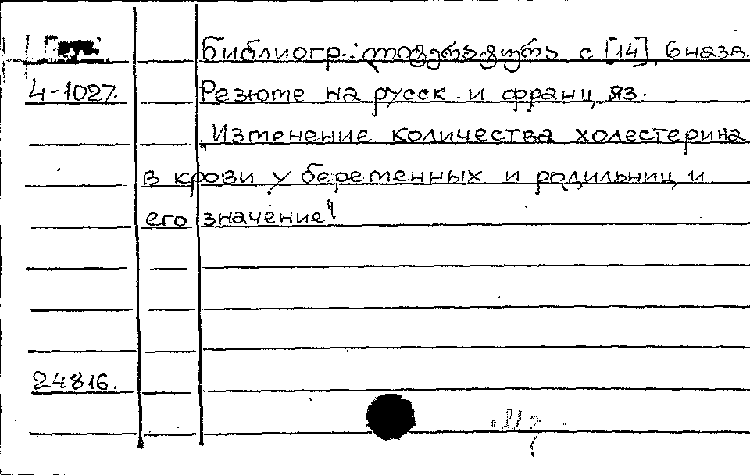 Библиогр.: ლიტერატურა с [14], 6 назв
4-1027. Резюме на русск. и франц. яз.
„Изменение количества холестерина
в крови у беременных и родильниц и
его значение“
24816.